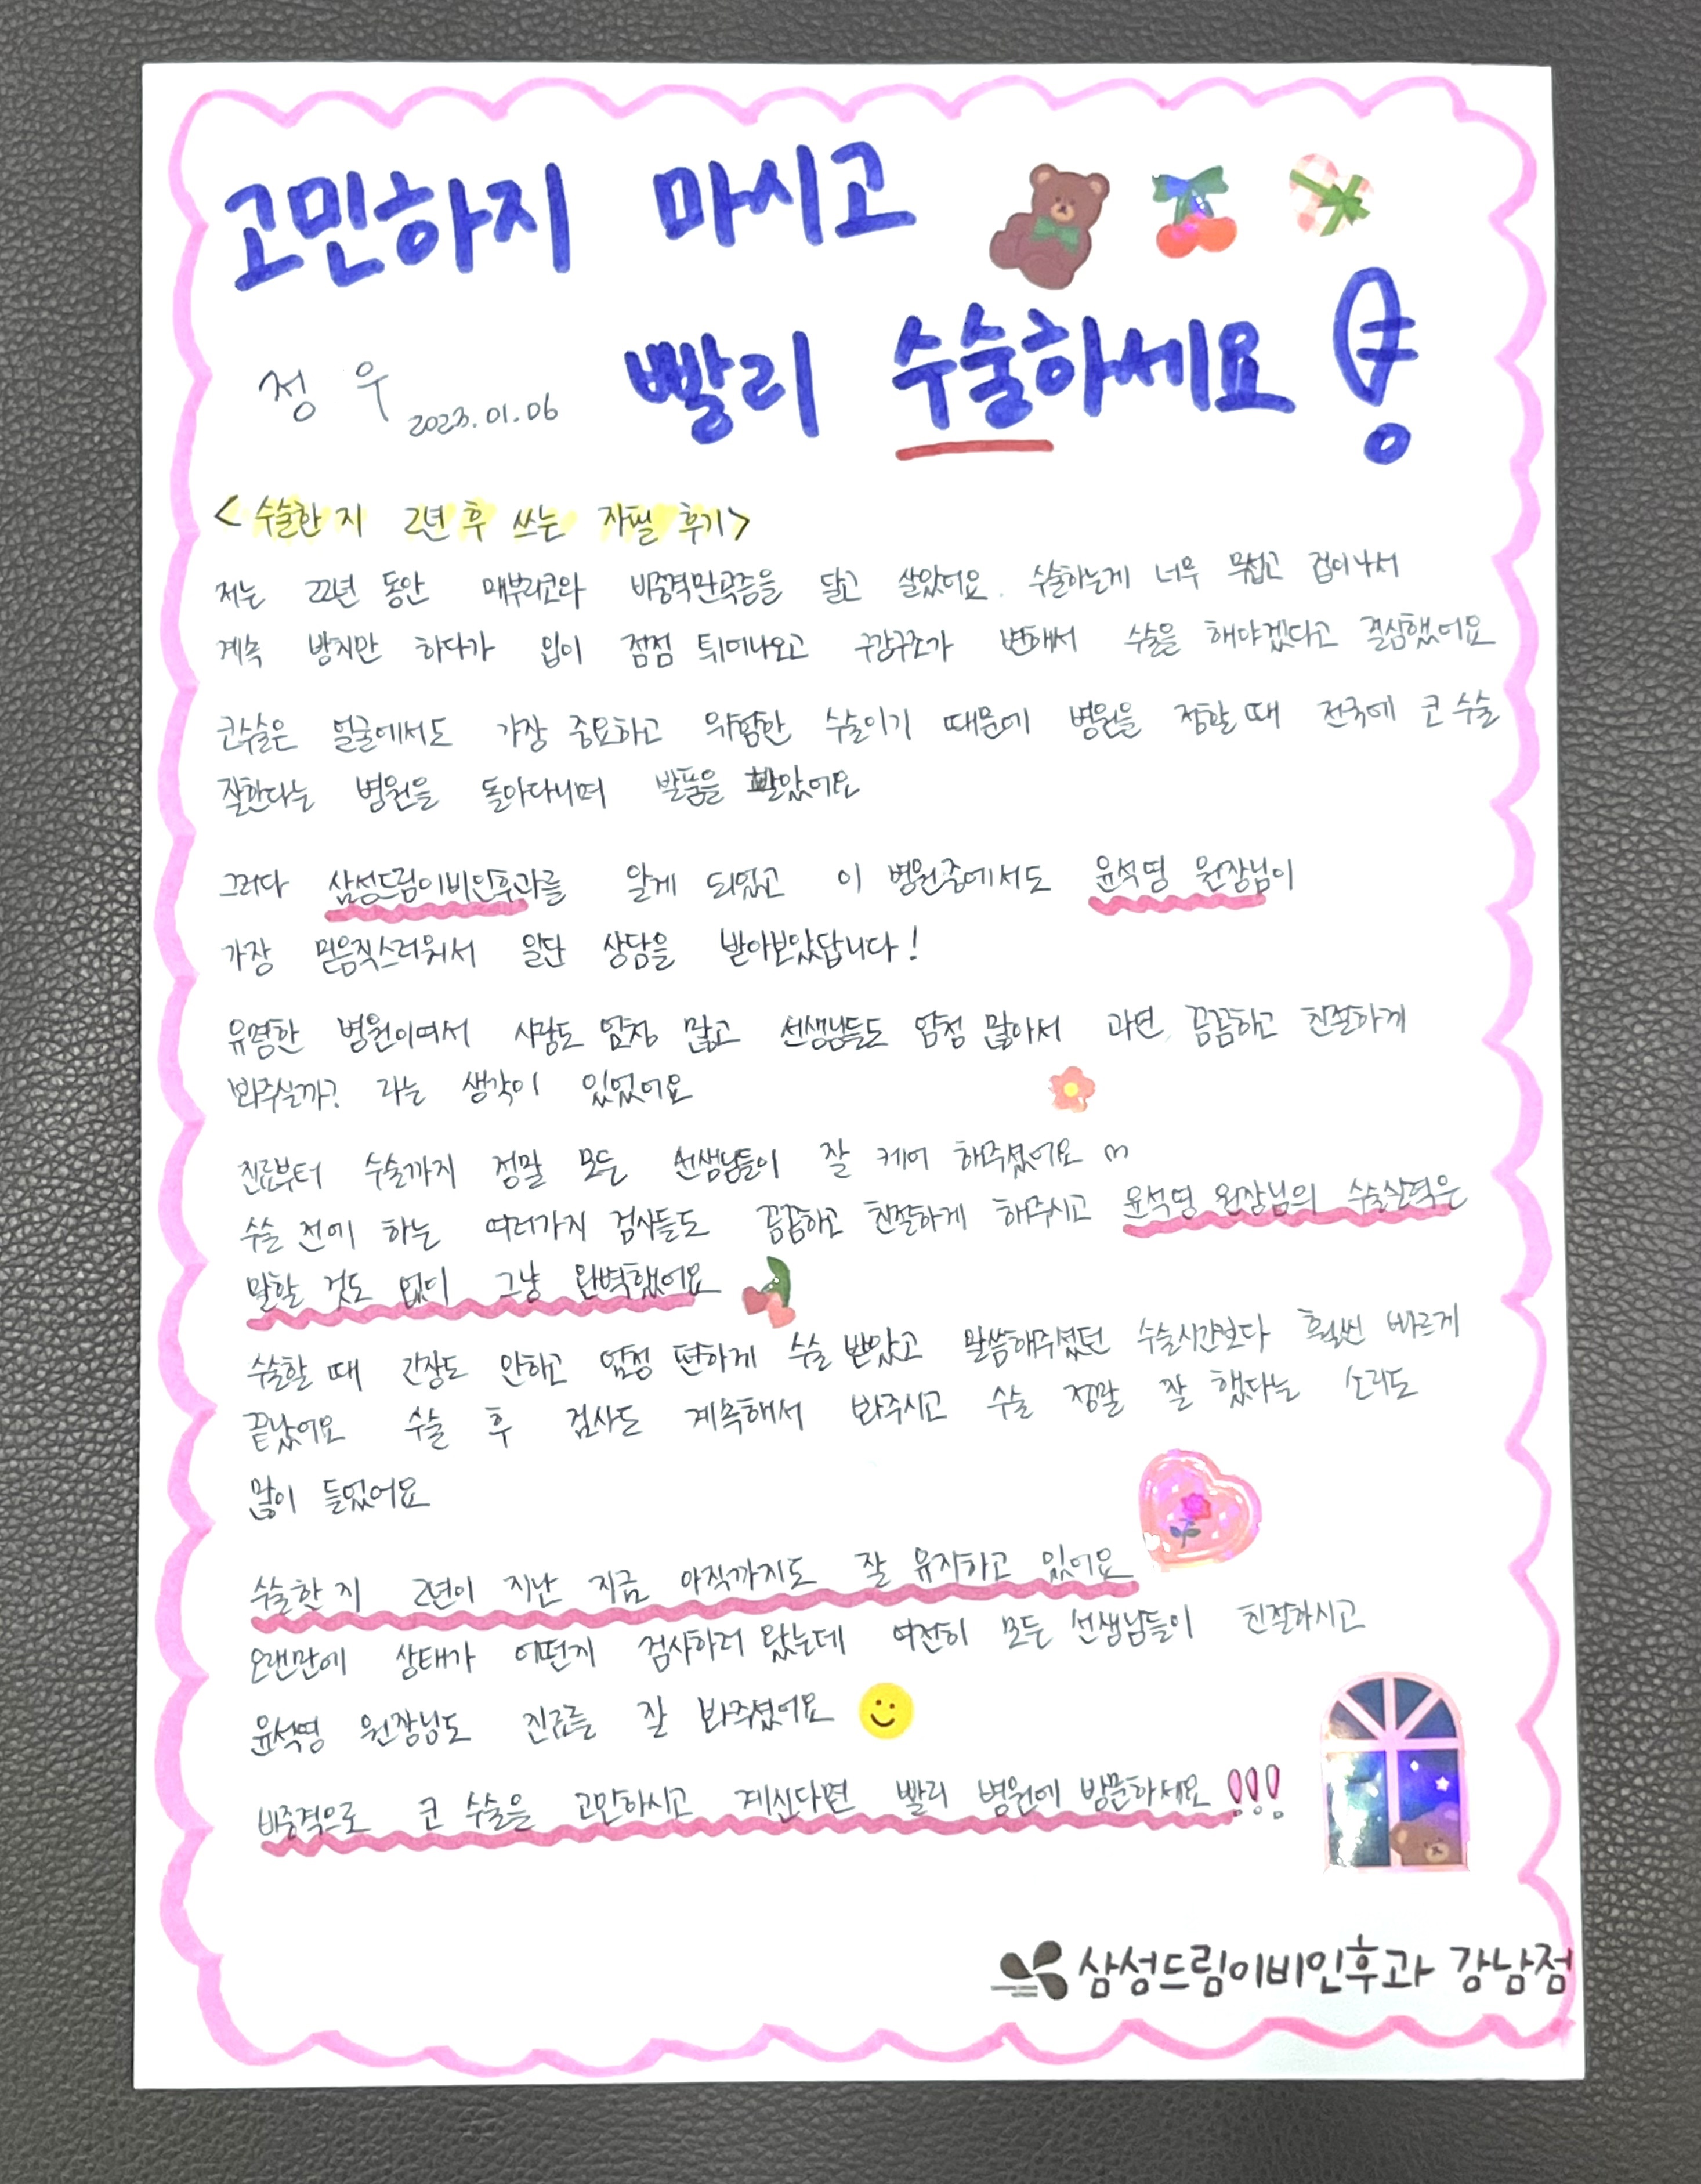 고민하지 마시고
빨리 수술하세요!
정우 2023.01.06
<수술한 지 2년 후 쓰는 자필 후기>
저는 22년 동안 매부리코와 비중격만곡증을 달고 살았어요. 수술하는게 너무 무섭고 겁이나서
계속 방치만 하다가 입이 점점 튀어나오고 구강구조가 변해서 수술을 해야겠다고 결심했어요
코수술은 얼굴에서도 가장 중요하고 위험한 수술이기 때문에 병원을 정할 때 전국에 코 수술
잘한다는 병원을 돌아다니며 발품을 팔았어요
그러다 삼성드림이비인후과를 알게 되었고 이 병원중에서도 윤석영 원장님이
가장 믿음직스러워서 일단 상담을 받아보았답니다!
유명한 병원이여서 사람도 엄청 많고 선생님들도 엄청 많아서 과연 꼼꼼하고 친절하게
봐주실까? 라는 생각이 있었어요
진료부터 수술까지 정말 모든 선생님들이 잘 케어 해주셨어요
수술 전에 하는 여러가지 검사들도 꼼꼼하고 친절하게 해주시고 윤석영 원장님의 수술실력은
말할 것도 없이 그냥 완벽했어요
수술할 때 긴장도 안하고 엄청 편하게 수술 받았고 말씀해주셨던 수술시간보다 훨씬 빠르게
끝났어요 수술 후 검사도 계속해서 봐주시고 수술 정말 잘 했다는 소리도
많이 들었어요
수술한 지 2년이 지난 지금 아직까지도 잘 유지하고 있어요
오랜만에 상태가 어떤지 검사하러 왔는데 여전히 모든 선생님들이 친절하시고
윤석영 원장님도 진료를 잘 봐주셨어요
비중격으로 코 수술을 고민하시고 계신다면 빨리 병원에 방문하세요!!!
삼성드림이비인후과 강남점